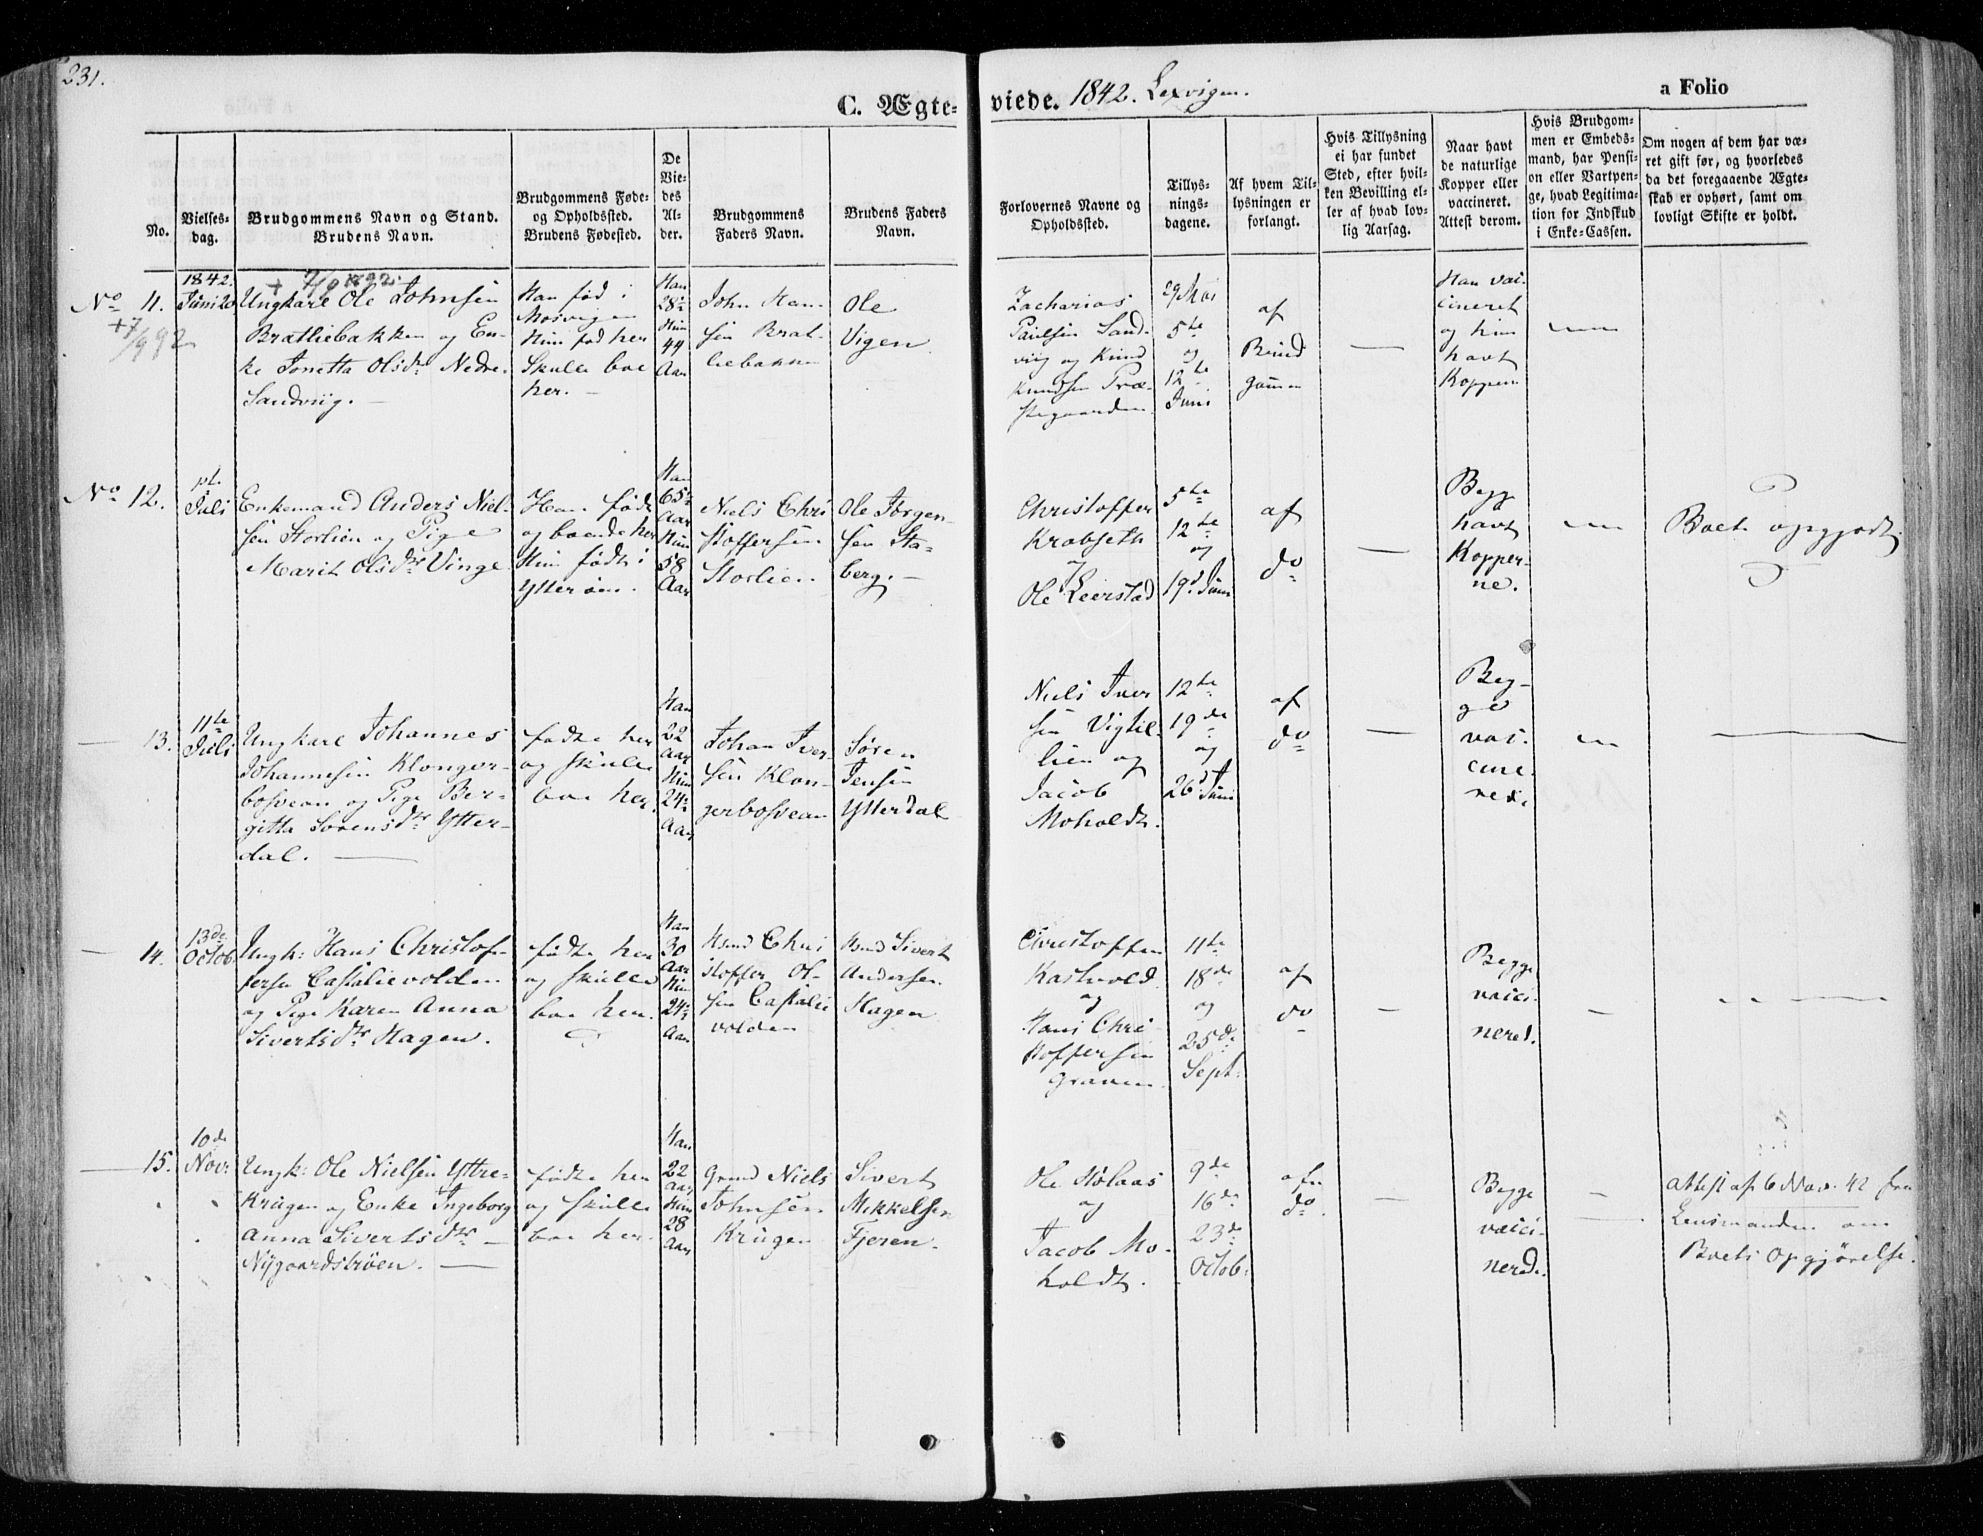 231.
C. Ægteviede. 1842. Lexvigen.
a Folio
No.
Vielses-
dag.
Brudgommens Navn og Stand.
Brudens Navn.
Brudgommens Føde-
og Opholdssted.
Brudens Fødested.
De
Vie-
des
Al-
der.
Brudgommens
Faders Navn.
Brudens Faders
Navn.
Forlovernes Navne og
Opholdssted.
Tillys-
nings-
dagene.
Af hvem Til-
lysningen er
forlangt.
Hvis Tillysning
ei har fundet
Sted, efter hvil-
ken Bevilling el-
ler af hvad lov-
lig Aarsag.
Naar havt
de naturlige
Kopper eller
vaccineret.
Attest derom.
Hvis Brudgom-
men er Embeds-
mand, har Pensi-
on eller Vartpen-
ge, hvad Legitima-
tion for Indskud
i Enke-Cassen.
Om nogen af dem har væ-
ret gift før, og hvorledes
da det foregaaende Ægte-
skab er ophørt, samt om
lovligt Skifte er holdt.
No 11.
+7/9 92
1842.
Juni 20
+ 7/9 1892
Ungkarl Ole Johnsen
Brætliebakken og En-
ke Jonetta Olsdr Nedre-
Sandviig. —
Han fød i
Mosvigen
Hun fød her
Skulle boe
her. —
Han
28
Hun
44
Aar
John Han-
sen Bræt-
liebakken
Ole
Vigen
Zacharias
Paulsen Sand-
viig og Knud
Knudsen Præ-
stegaarden
29 Mai
5te
og
12te
Juni
af
Brud
gommen
—
Han vac-
cineret
og hun
havt
Koppern
No 12.
1st
Juli
Enkemand Anders Niel-
sen Storlien og Pige
Marit Olsdr Vinge
Han født
og boende her
Hun født i
Ytterøen.
Han
65
Aar
Hun
58
Aar
Niels Chri
stoffersen
Storlien
Ole Jørgen-
sen Sta-
berg. —
Christoffer
Krabseth
og
Ole Leerstad
5te
12te
og
19d Juni
af
do
—
Begge
havt
Kopper-
ne.
Boet opgjordt
13.
11te
Juli
Ungkarl Johannes
Johannesen Klonger-
bosveen og Pige Ber-
gitta Sørensdr Ytter-
dal. —
fødte her
og skulle
boe her.
Han
22
Aar
Hun
24
Aar
Johan Iver-
sen Klon-
gerbosveen
Søren
Jensen
Ytterdal
Niels Iver
sen Vigtil-
lien og
Jacob
Moholdt.
12te
19de
og
26d Juni
af
do
—
Beg-
ge
vac-
cine-
rede
14.
13de
Octob.
Ungk: Hans Christof-
fersen Castalievolden
og Pige Karen Anna
Sivertsdr Hagen.
fødte her
og skulle
boe her.
Han
30
Aar
Hun
24
Aar
Hsmd Chri
stoffer Ol-
sen Castalie
volden
Hsmd Sivert
Andersen
Hagen
Christopher
Kastnvold
og
Hans Chri-
stoffersen
Graven
11te
18de
og
25de
Sept.
af
do
—
Begge
vacci-
nered.
15.
10de
Nov:
Ungk: Ole Nielsen Yttre-
Krügen og Enke Ingeborg
Anna Sivertsdr —
Nygaardstrøen. —
fødte her
og skulle
boe her.
Han
22
Aar
Hun
28
Aar
Grmd Niels
Johnsen
Krügen
Sivert
Mikkelsen
Fjeren.
Ole Kolaas
og
Jacob Mo-
holdt.
9de
16de
23de
Octob:
af
do.
—
Begge
vacci-
nerede.
Attest af 6 Nov. 42 fra
Lensmanden om
Boets Opgjørelse.